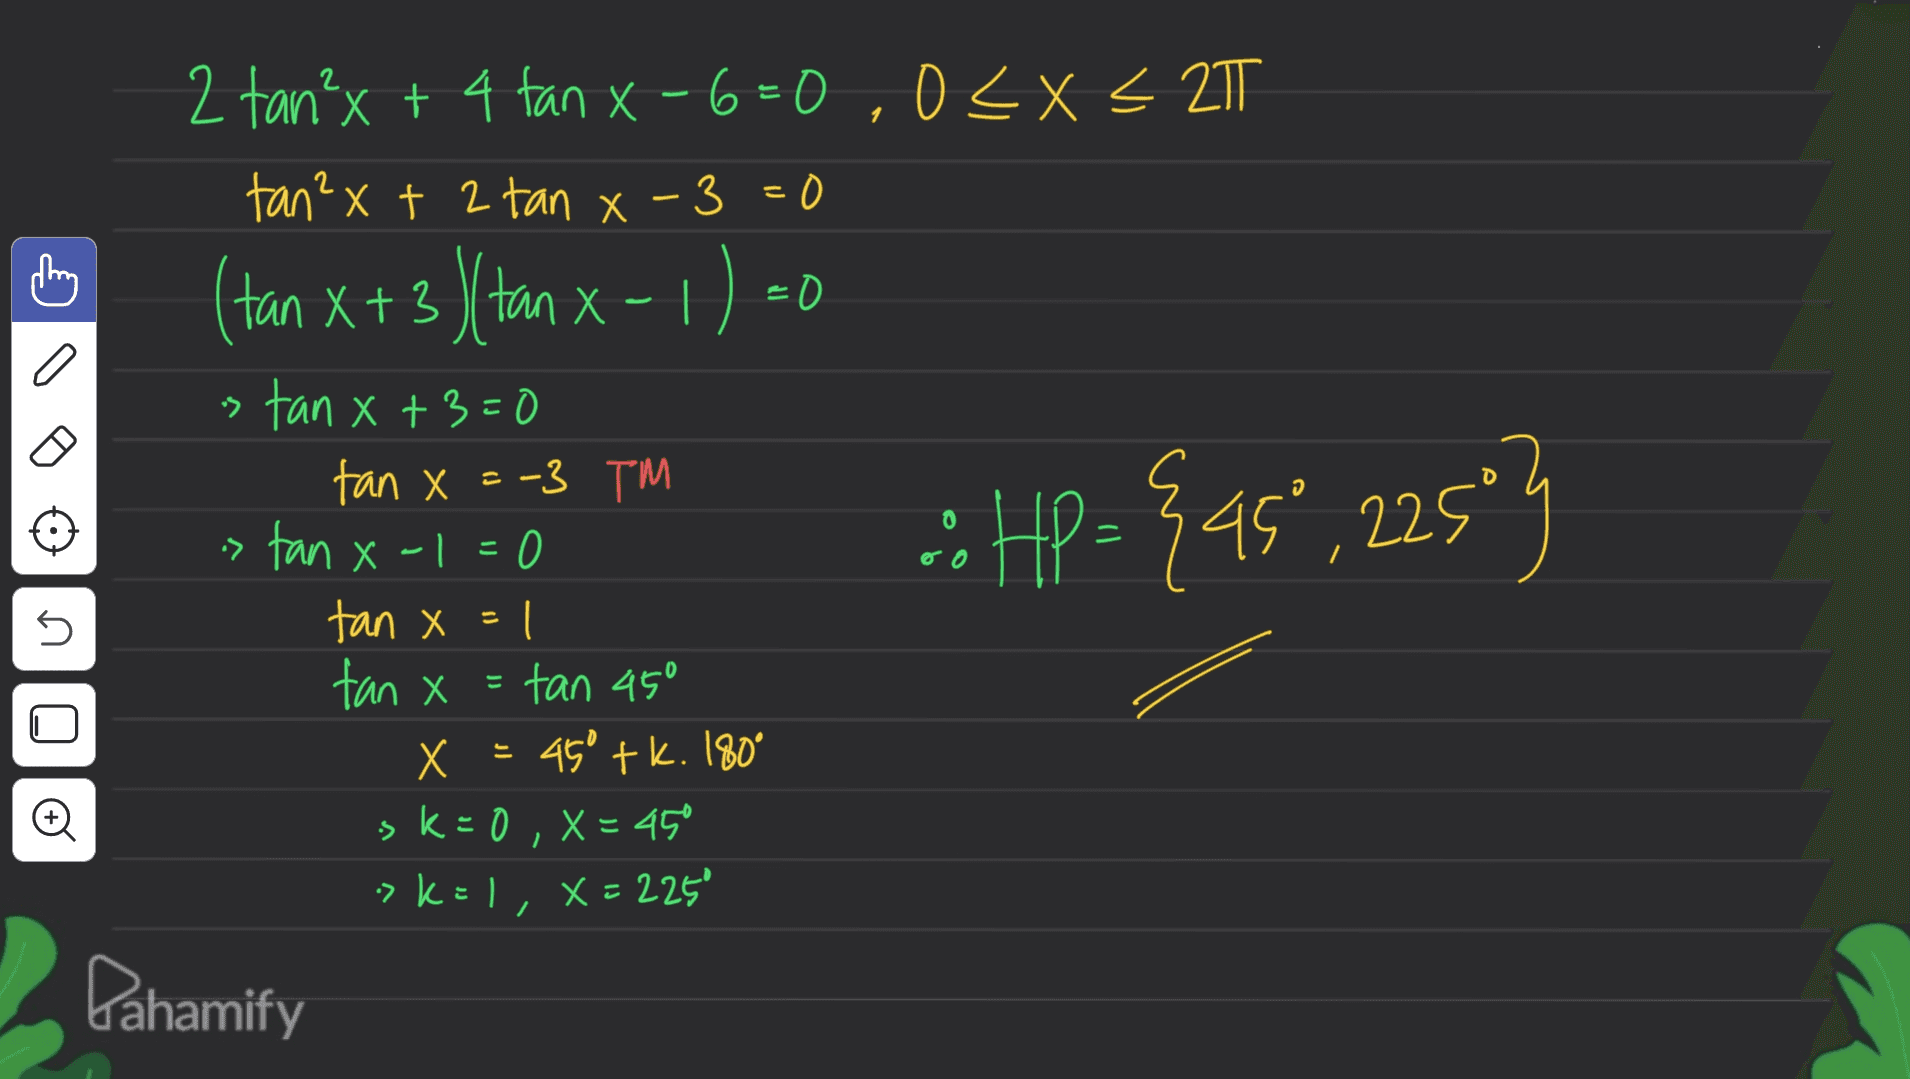 2 tan²x + 4 tan x - 6 = 0 , 0 ≤ x ≤ 2π
tan²x + 2 tan x - 3 = 0
(tan x + 3)(tan x - 1) = 0
> tan x + 3 = 0
tan x = -3 TM
> tan x - 1 = 0
tan x = 1
tan x = tan 45°
x = 45° + k. 180°
> k = 0 , x = 45°
> k = 1 , x = 225°
∴ HP = {45° , 225°}
Pahamify